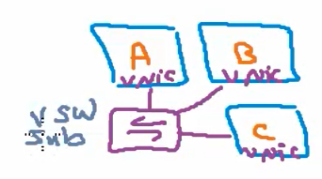 A
vNic
B
vNic
vSW
Sub
C
vNic